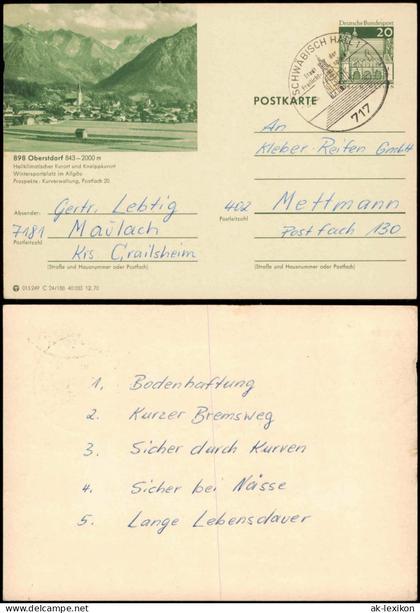 Deutsche Bundespost
20
SCHWÄBISCH HALL 1
717
POSTKARTE
898 Oberstdorf 843–2000 m
Heilklimatischer Kurort und Kneippkurort
Wintersportplatz im Allgäu
Prospekte: Kurverwaltung, Postfach 20
An
Kleber-Reifen GmbH
Absender: Gertr. Lebtig
7181 Maulach
Postleitzahl
Krs Crailsheim
(Straße und Hausnummer oder Postfach)
402 Mettmann
Postleitzahl
Postfach 130
(Straße und Hausnummer oder Postfach)
013 249 C 24/186 40 000 12.70
1. Bodenhaftung
2. Kurzer Bremsweg
3. Sicher durch Kurven
4. Sicher bei Nässe
5. Lange Lebensdauer
ak-lexikon.de